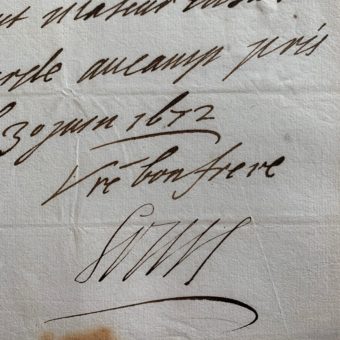 garde aucamp pris
30 juin 1672
Vrè bon frere
Louis